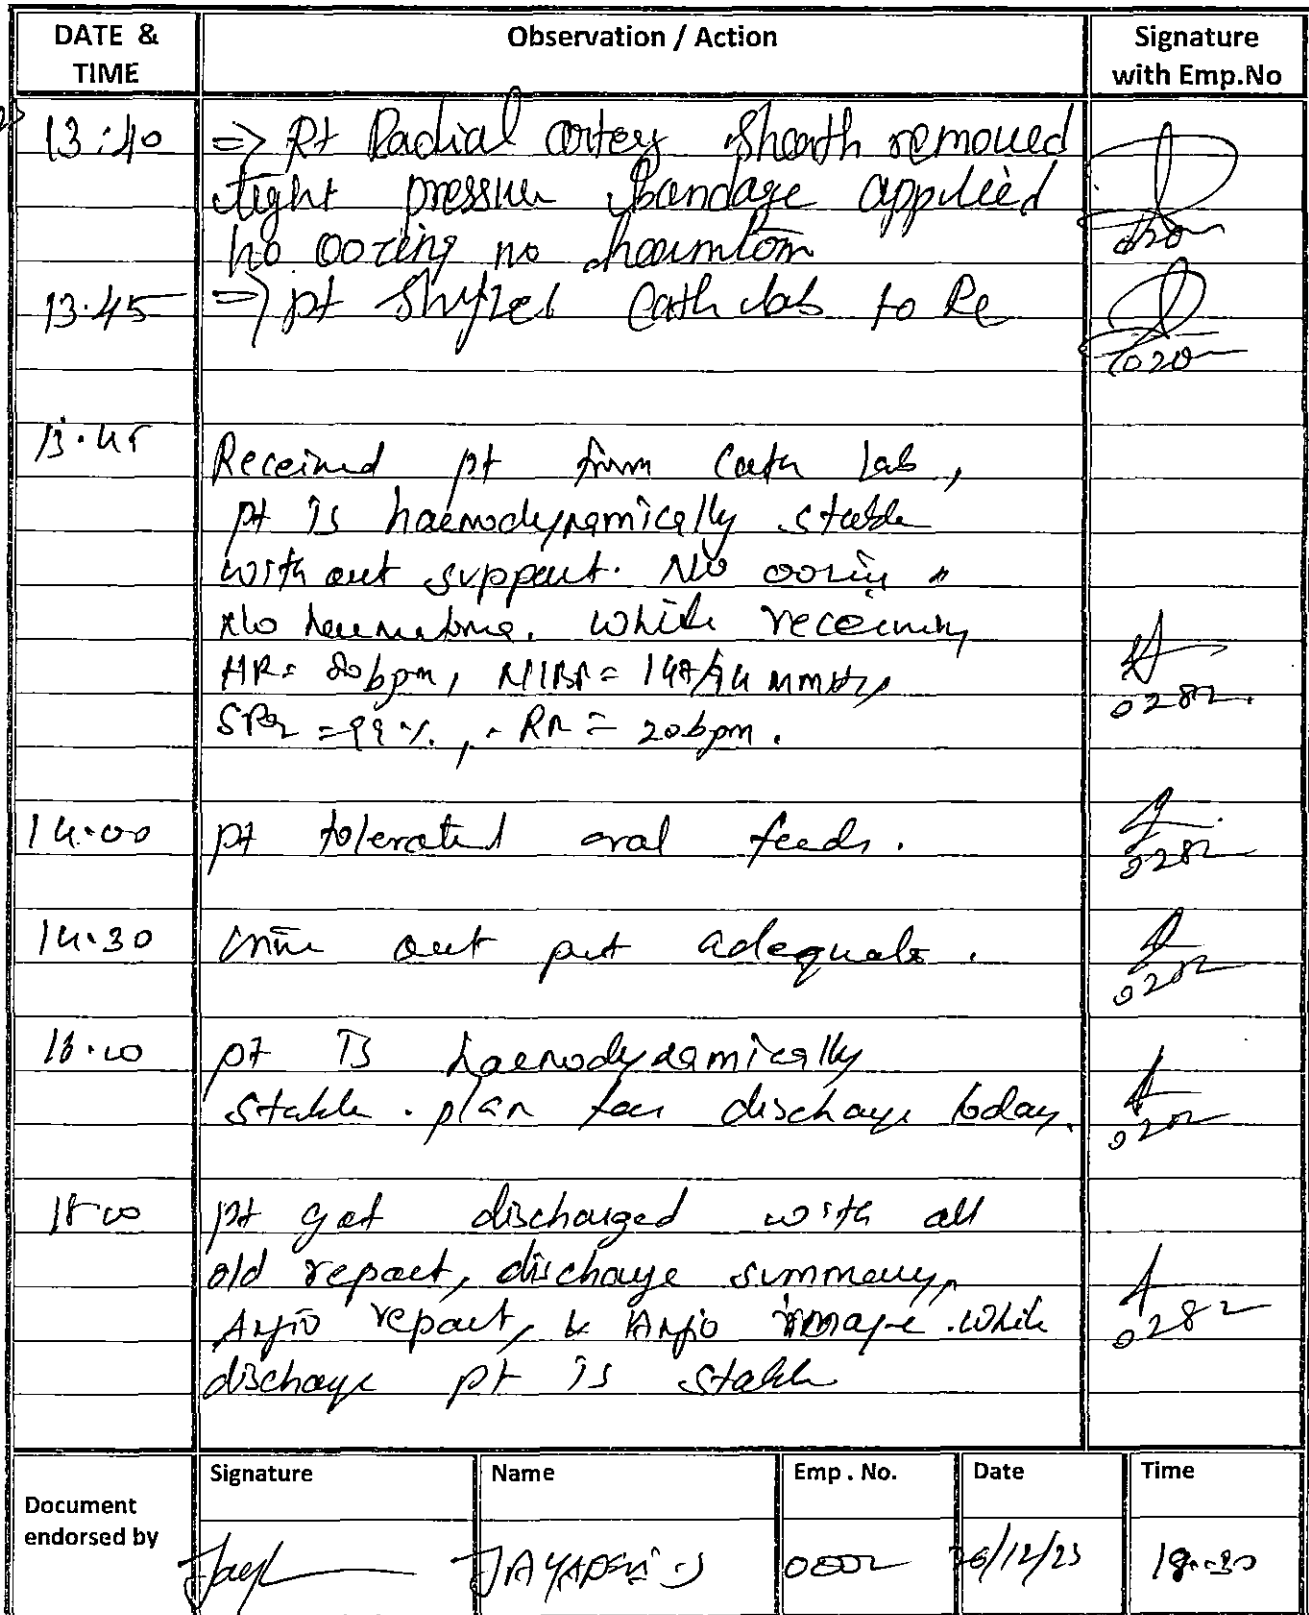 DATE & TIME
Observation / Action
Signature with Emp.No
13:40 => Rt Radial artery Sheath removed
tight pressure bandage applied
no oozing no
13.45 => pt Shifted Cath lab to Re
1020
13.45
Received pt from Cath Lab,
pt is haemodynamically stable
with out support. No oozing
No . While receiving
HR= 80bpm, NIBP= 148/94 mmHg,
SPO2 =99%, RR = 20bpm.
0282
14.00 pt tolerated oral feeds.
0282
14.30 urine out put adequate.
0282
16.00 pt is haemodynamically
stable. plan for discharge today.
0282
18.00 pt get discharged with all
old report, discharge summary,
Angio report, & Angio image. While
discharge pt is stable
0282
Document endorsed by
Signature Name Emp . No. Date Time
0002 /12/23 18:30